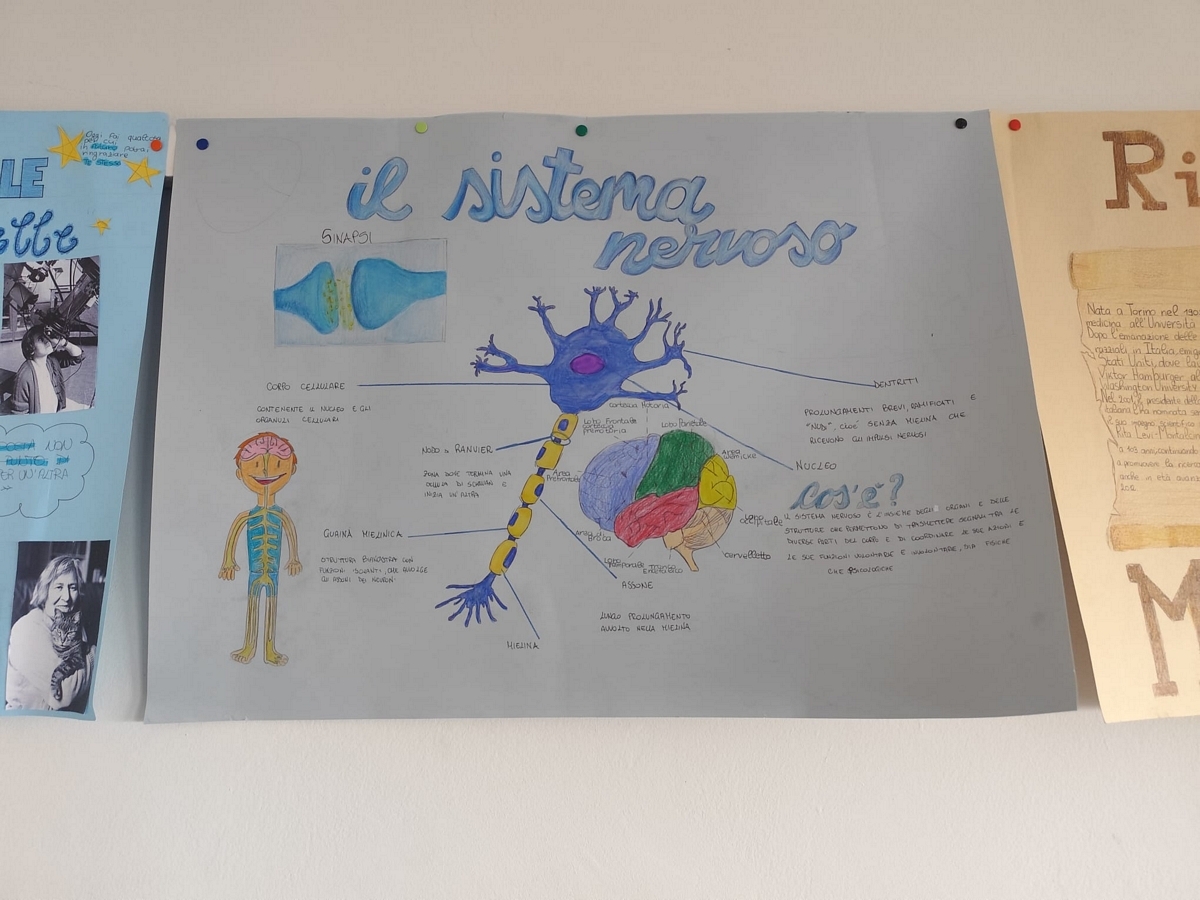 LE
elle
Oggi fai qualcosa
per cui
in potrai
ringraziare
te stesso
NON
PER UN'ALTRA
il sistema
nervoso
SINAPSI
CORPO CELLULARE
CONTENENTE IL NUCLEO E GLI
ORGANULI CELLULARI
NODO DI RANVIER
ZONA DOVE TERMINA UNA
CELLULA DI SCHWANN E
INIZIA UN'ALTRA
GUAINA MIELINICA
STRUTTURA BIANCASTRA CON
FUNZIONI ISOLANTI, CHE AVVOLGE
GLI ASSONI DEI NEURONI
MIELINA
ASSONE
LUNGO PROLUNGAMENTO
AVVOLTO NELLA MIELINA
DENTRITI
PROLUNGAMENTI BREVI, RAMIFICATI E
"NUDI", CIOÈ SENZA MIELINA CHE
RICEVONO GLI IMPULSI NERVOSI
NUCLEO
corteccia Motoria
Lobo Frontale
corteccia
premotoria
Lobo Parietale
Area
Prefrontale
Area
Wernicke
Lobo
occipitale
cervelletto
Area di
Broca
Lobo
Temporale
Tronco
Encefalico
cos'è?
IL SISTEMA NERVOSO È L'INSIEME DEGLI ORGANI E DELLE
STRUTTURE CHE PERMETTONO DI TRASMETTERE SEGNALI TRA LE
DIVERSE PARTI DEL CORPO E DI COORDINARE LE SUE AZIONI E
LE SUE FUNZIONI VOLONTARIE E INVOLONTARIE, SIA FISICHE
CHE PSICOLOGICHE
Ri
Nata a Torino nel 190
medicina all'Università
Dopo l'emanazione delle
razziali in Italia, emig
Stati Uniti, dove la
Viktor Hamburger al
Washington University
Nel 2001, il presidente della
italiana l'ha nominata se
il suo magno scientifico
Rita Levi-Montalcini
a 103 anni, continuando
a promuovere la ricerca
anche in età avanzata
2012
M